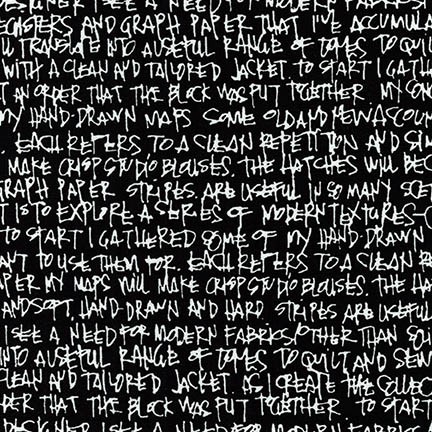 DESIGNER I SEE A NEED FOR MODERN FABRICS
REGISTERS AND GRAPH PAPER THAT I'VE ACCUMULA
ILL TRANSLATE INTO A USEFUL RANGE OF TONES TO QUIL
WITH A CLEAN AND TAILORED JACKET TO START I GATH
T AN ORDER THAT THE BLOCK WAS PUT TOGETHER MY SON
MY HAND-DRAWN MAPS SOME OLD AND NEW ACCOUN
EACH REFERS TO A CLEAN REPETITION AND SIM
MAKE CRISP STUDIO BLOUSES. THE HATCHES WILL BEC
GRAPH PAPER STRIPES ARE USEFUL IN SO MANY SCE
T IS TO EXPLORE A SERIES OF MODERN TEXTURES-
TO START I GATHERED SOME OF MY HAND-DRAWN
ANT TO USE THEM FOR. EACH REFERS TO A CLEAN
PER MY MAPS WILL MAKE CRISP STUDIO BLOUSES. THE HA
AND SOFT, HAND-DRAWN AND HARD. STRIPES ARE USEFUL
I SEE A NEED FOR MODERN FABRICS/OTHER THAN SOLI
INTO A USEFUL RANGE OF TONES TO QUILT AND SEW
CLEAN AND TAILORED JACKET AS I CREATE THE COLLEC
DER THAT THE BLOCK WAS PUT TOGETHER TO START
DESIGNER I SEE A NEED FOR MODERN FABRICS